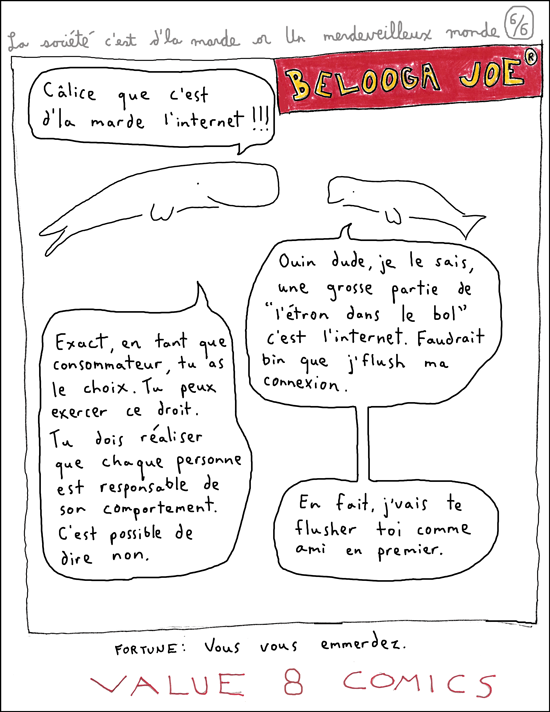 La société c'est d'la marde or Un merdeveilleux monde 6/6
BELOOGA JOE®
Câlice que c'est
d'la marde l'internet !!!
Ouin dude, je le sais,
une grosse partie de
"l'étron dans le bol"
c'est l'internet. Faudrait
bin que j'flush ma
connexion.
Exact, en tant que
consommateur, tu as
le choix. Tu peux
exercer ce droit.
Tu dois réaliser
que chaque personne
est responsable de
son comportement.
C'est possible de
dire non.
En fait, j'vais te
flusher toi comme
ami en premier.
FORTUNE: Vous vous emmerdez.
VALUE 8 COMICS